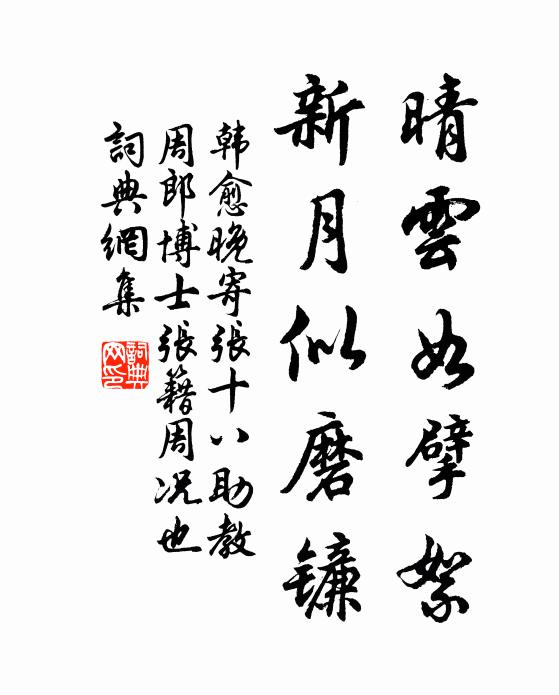 晴雲如擘絮
新月似磨镰
韩愈晚寄張十八助教
周郎博士張籍周况也
詞典網集
詞典
网印